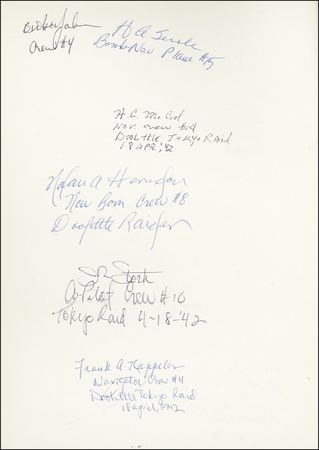 Crew #4
H A Sessler
Bomb Nav Plane #15
H.C. McCool
Nav crew #4
Doolittle Tokyo Raid
18 APR, '42
Nolan A Herndon
Nav Bom Crew #8
Doolittle Raider
JR Stork
Co Pilot Crew #10
Tokyo Raid 4-18-'42
Frank A. Kappeler
Navigator Crew #11
Doolittle Tokyo Raid
18 april, 1942